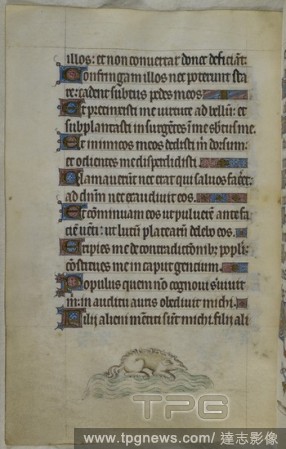 illos: et non convertar donec deficiāt.
Confringam illos nec poterunt sta
re: cadent subtus pedes meos
Et precinxisti me virtute ad bellū: et
subplantasti insurgētes ī me subtus me.
Et inimicos meos dedisti m̄ dorsum:
et odientes me disperdidisti.
Clamaverūt nec erat qui salvos facēt:
ad dn̄m nec exaudivit eos.
Et cōminuam eos ut pulverē ante fa
ciē vēti: ut lutū platearū delebo eos.
Eripies me de contradictōnib; popli:
cōstitues me in caput gencium.
Populus quem nō cognovi s'vivit
m̄: in auditu auris obedivit michi.
Filii alieni mētiti sūt michi. filii ali
TPG
www.tpgnews.com/ 達志影像